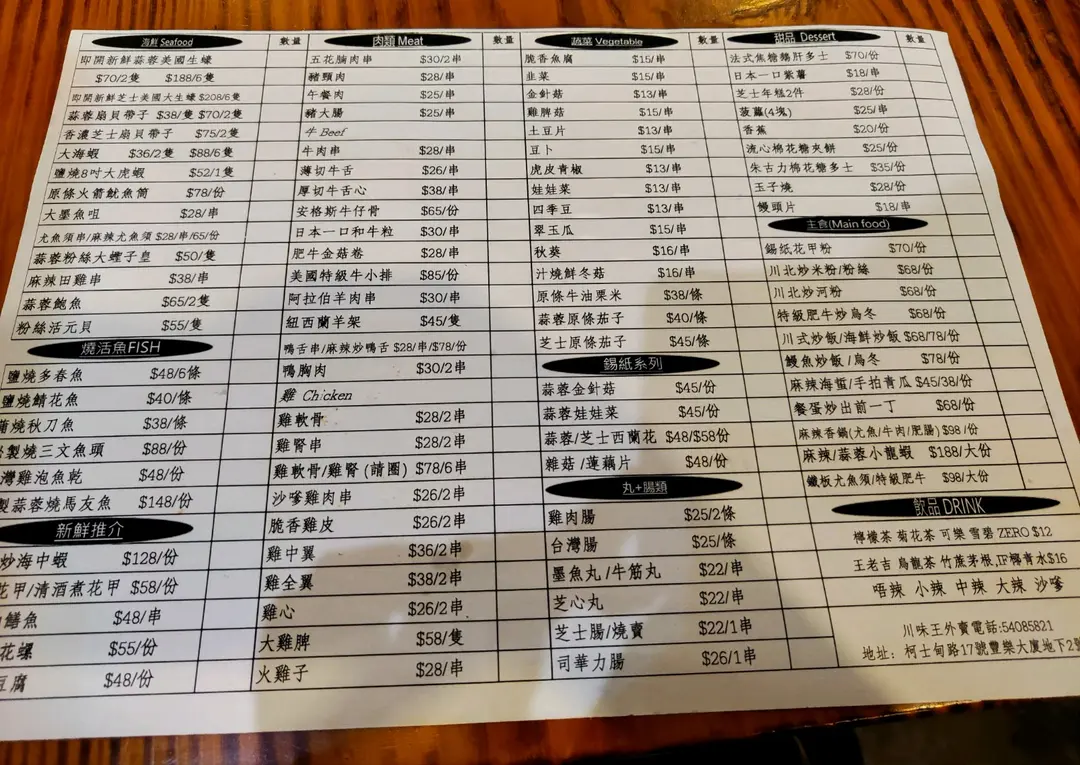 海鮮 Seafood 數量
即開新鮮蒜蓉美國生蠔
$70/2隻 $188/6隻
即開新鮮芝士美國大生蠔 $208/6隻
蒜蓉扇貝帶子 $38/隻 $70/2隻
香濃芝士扇貝帶子 $75/2隻
大海蝦 $36/2隻 $88/6隻
鹽燒8吋大虎蝦 $52/1隻
原條火箭魷魚筒 $78/份
大墨魚咀 $28/串
尤魚須串/麻辣尤魚須 $28/串/65/份
蒜蓉粉絲大蟶子皇 $50/隻
麻辣田雞串 $38/串
蒜蓉鮑魚 $65/2隻
粉絲活元貝 $55/隻
燒活魚FISH
鹽燒多春魚 $48/6條
鹽燒鯖花魚 $40/條
燒秋刀魚 $38/條
製燒三文魚頭 $88/份
灣雞泡魚乾 $48/份
製蒜蓉燒馬友魚 $148/份
新鮮推介
炒海中蝦 $128/份
花甲/清酒煮花甲 $58/份
鱔魚 $48/串
花螺 $55/份
豆腐 $48/份
肉類 Meat 數量
五花腩肉串 $30/2串
豬頸肉 $28/串
午餐肉 $25/串
豬大腸 $25/串
牛 Beef
牛肉串 $28/串
薄切牛舌 $26/串
厚切牛舌心 $38/串
安格斯牛仔骨 $65/份
日本一口和牛粒 $30/串
肥牛金菇卷 $28/串
美國特級牛小排 $85/份
阿拉伯羊肉串 $30/串
紐西蘭羊架 $45/隻
鴨舌串/麻辣炒鴨舌 $28/串/$78/份
鴨胸肉 $30/2串
雞 Chicken
雞軟骨 $28/2串
雞腎串 $28/2串
雞軟骨/雞腎 (請圈) $78/6串
沙嗲雞肉串 $26/2串
脆香雞皮 $26/2串
雞中翼 $36/2串
雞全翼 $38/2串
雞心 $26/2串
大雞脾 $58/隻
火雞子 $28/串
蔬菜 Vegetable 數量
脆香魚腐 $15/串
韭菜 $15/串
金針菇 $13/串
雞脾菇 $15/串
土豆片 $13/串
豆卜 $15/串
虎皮青椒 $13/串
娃娃菜 $13/串
四季豆 $13/串
翠玉瓜 $15/串
秋葵 $16/串
汁燒鮮冬菇 $16/串
原條牛油粟米 $38/條
蒜蓉原條茄子 $40/條
芝士原條茄子 $45/條
錫紙系列
蒜蓉金針菇 $45/份
蒜蓉娃娃菜 $45/份
蒜蓉/芝士西蘭花 $48/$58份
雜菇 /蓮藕片 $48/份
丸+腸類
雞肉腸 $25/2條
台灣腸 $25/條
墨魚丸 /牛筋丸 $22/串
芝心丸 $22/串
芝士腸/燒賣 $22/1串
司華力腸 $26/1串
甜品 Dessert 數量
法式焦糖鵝肝多士 $70/份
日本一口紫薯 $18/串
芝士年糕2件 $28/份
菠蘿(4塊) $25/串
香蕉 $20/份
流心棉花糖夾餅 $25/份
朱古力棉花糖多士 $35/份
玉子燒 $28/份
饅頭片 $18/串
主食(Main food)
錫紙花甲粉 $70/份
川北炒米粉/粉絲 $68/份
川北炒河粉 $68/份
特級肥牛炒烏冬 $68/份
川式炒飯/海鮮炒飯 $68/78/份
鰻魚炒飯 /烏冬 $78/份
麻辣海蜇/手拍青瓜 $45/38/份
餐蛋炒出前一丁 $68/份
麻辣香鍋(尤魚/牛肉/肥腸) $98 /份
麻辣/蒜蓉小龍蝦 $188/大份
鐵板尤魚須/特級肥牛 $98/大份
飲品 DRINK
檸檬茶 菊花茶 可樂 雪碧 ZERO $12
王老吉 烏龍茶 竹蔗茅根,IF椰青水$16
唔辣 小辣 中辣 大辣 沙嗲
川味王外賣電話:54085821
地址: 柯士甸路17號豐樂大廈地下2號